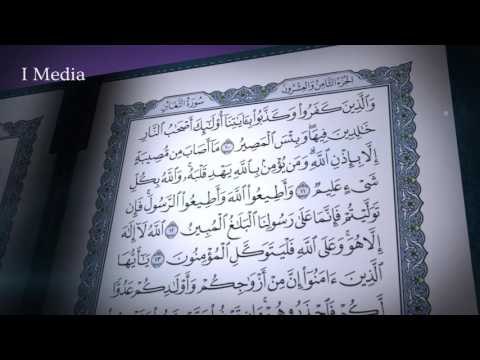 I Media
سُورَةُ التَّغَابُنِ
الجُزْءُ الثَّامِنُ وَالعِشْرُونَ
وَالَّذِينَ كَفَرُوا۟ وَكَذَّبُوا۟ بِـَٔايَٰتِنَآ أُو۟لَٰٓئِكَ أَصْحَٰبُ النَّارِ
خَٰلِدِينَ فِيهَا وَبِئْسَ الْمَصِيرُ ١٠ مَآ أَصَابَ مِن مُّصِيبَةٍ
إِلَّا بِإِذْنِ اللَّهِ وَمَن يُؤْمِنۢ بِاللَّهِ يَهْدِ قَلْبَهُۥ وَاللَّهُ بِكُلِّ
شَىْءٍ عَلِيمٌ ١١ وَأَطِيعُوا۟ اللَّهَ وَأَطِيعُوا۟ الرَّسُولَ فَإِن
تَوَلَّيْتُمْ فَإِنَّمَا عَلَىٰ رَسُولِنَا الْبَلَٰغُ الْمُبِينُ ١٢ اللَّهُ لَآ إِلَٰهَ
إِلَّا هُوَ وَعَلَى اللَّهِ فَلْيَتَوَكَّلِ الْمُؤْمِنُونَ ١٣ يَٰٓأَيُّهَا
الَّذِينَ ءَامَنُوٓا۟ إِنَّ مِنْ أَزْوَٰجِكُمْ وَأَوْلَٰدِكُمْ عَدُوًّا
لَّكُمْ فَاحْذَرُوهُمْ وَإِن